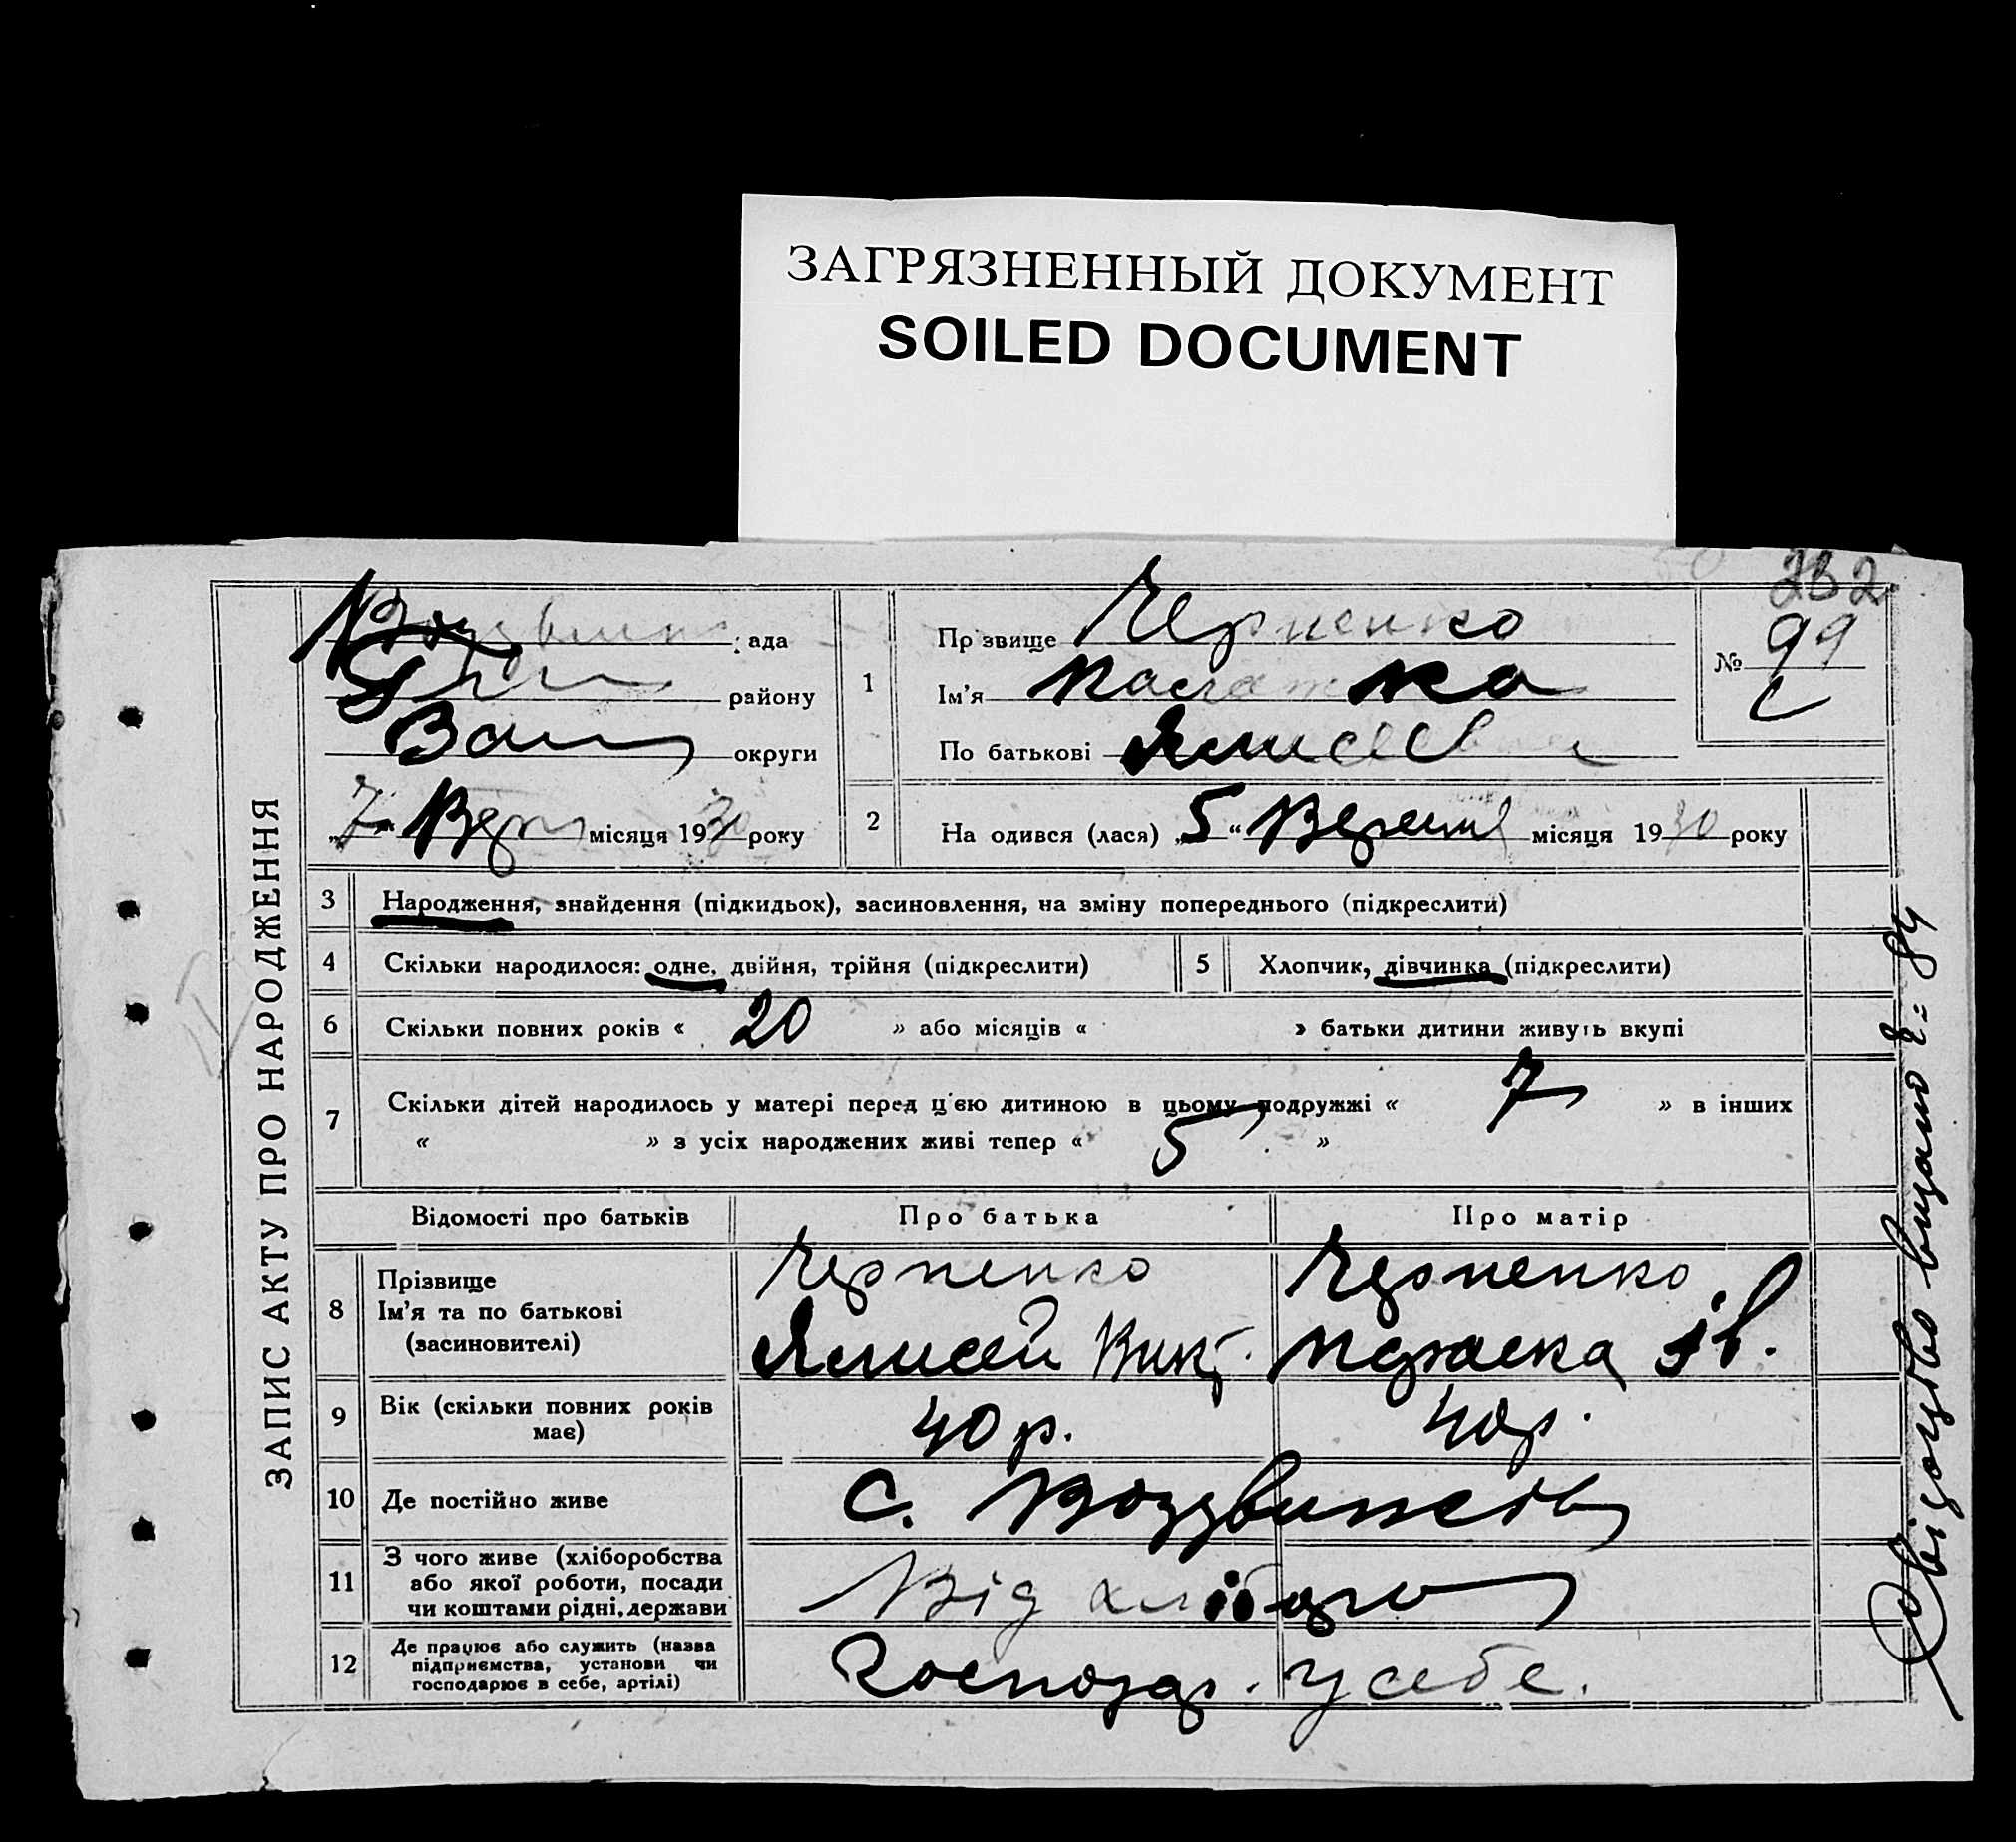 ЗАГРЯЗНЕННЫЙ ДОКУМЕНТ
SOILED DOCUMENT
232
ЗАПИС АКТУ ПРО НАРОДЖЕННЯ
ада
району
округи
7 Вер місяця 1930 року
1
Пр звище Черненко
Ім'я
По батькові
№ 99
2
На одився (лася) „5“ місяця 1930 року
3 Народження, знайдення (підкидьох), засиновлення, на зміну попереднього (підкреслити)
4 Скільки народилося: одне, двійня, трійня (підкреслити)
5 Хлопчик, дівчинка (підкреслити)
6 Скільки повних років « 20 » або місяців « » батьки дитини живуть вкупі
7 Скільки дітей народилось у матері перед ц'єю дитиною в цьому подружжі « 7 » в інших
« » з усіх народжених живі тепер « 5 »
Відомості про батьків Про батька Про матір
8 Прізвище Черненко Черненко
Ім'я та по батькові
(засиновителі)
9 Вік (скільки повних років 40 р. 40 р.
має)
10 Де постійно живе с.
11 З чого живе (хліборобства
або якої роботи, посади Від
чи коштами рідні, держави
12 Де працює або служить (назва
підприємства, установи чи Господар. у себе.
господарює в себе, артілі)